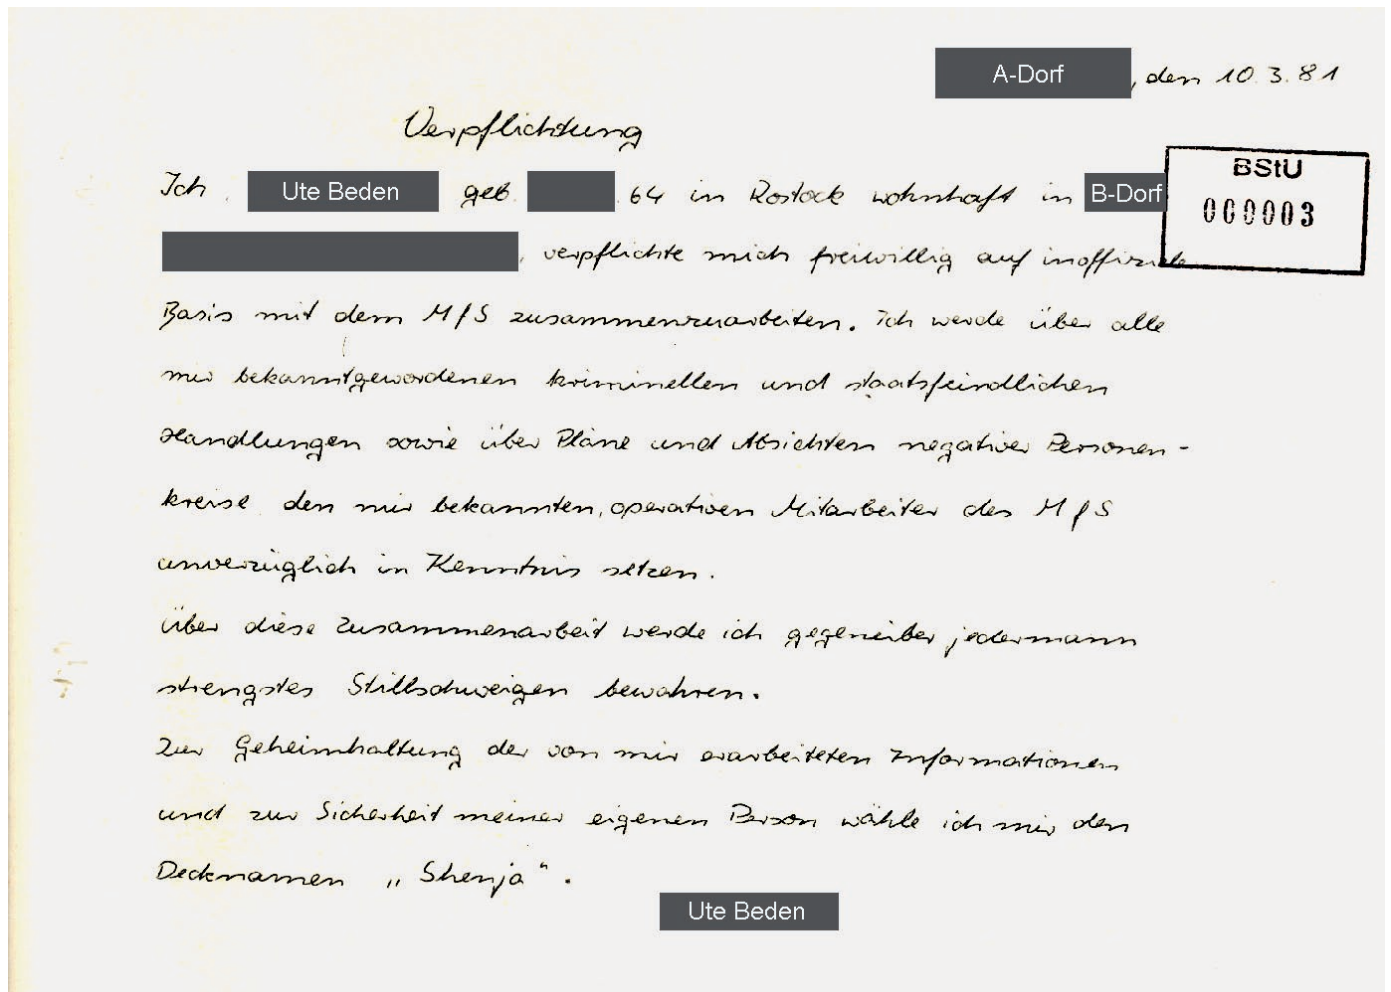 A-Dorf, den 10.3.81
Verpflichtung
BStU
000003
Ich Ute Beden geb. .64 in Rostock wohnhaft in B-Dorf
, verpflichte mich freiwillig auf inoffizielle
Basis mit dem MfS zusammenzuarbeiten. Ich werde über alle
mir bekanntgewordenen kriminellen und staatsfeindlichen
Handlungen sowie über Pläne und Absichten negativer Personen-
kreise den mir bekannten, operativen Mitarbeiter des MfS
unverzüglich in Kenntnis setzen.
Über diese Zusammenarbeit werde ich gegenüber jedermann
strengstes Stillschweigen bewahren.
Zur Geheimhaltung der von mir erarbeiteten Informationen
und zur Sicherheit meiner eigenen Person wähle ich mir den
Decknamen „Shenja".
Ute Beden